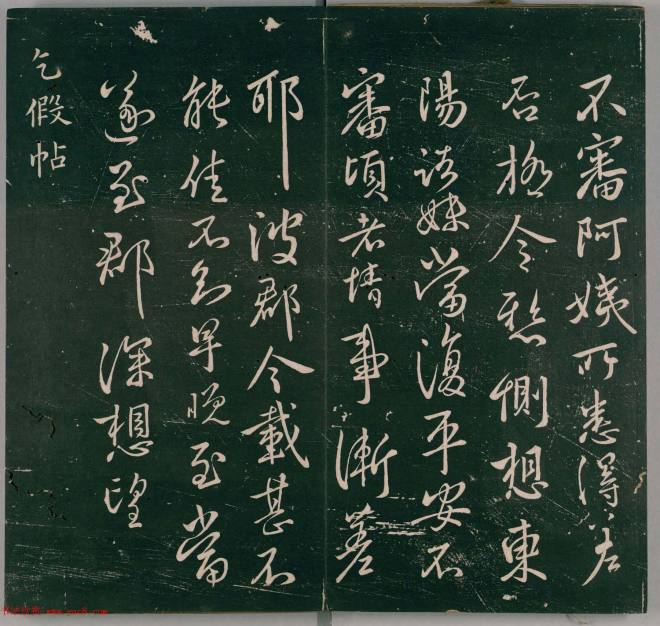 不審阿姨所患得差
否極令懸惻想東
陽諸妹當復平安不
審頃者情事漸差
耶彼郡今載甚不
能佳不知早晚至當
遂至郡深想望
乞假帖